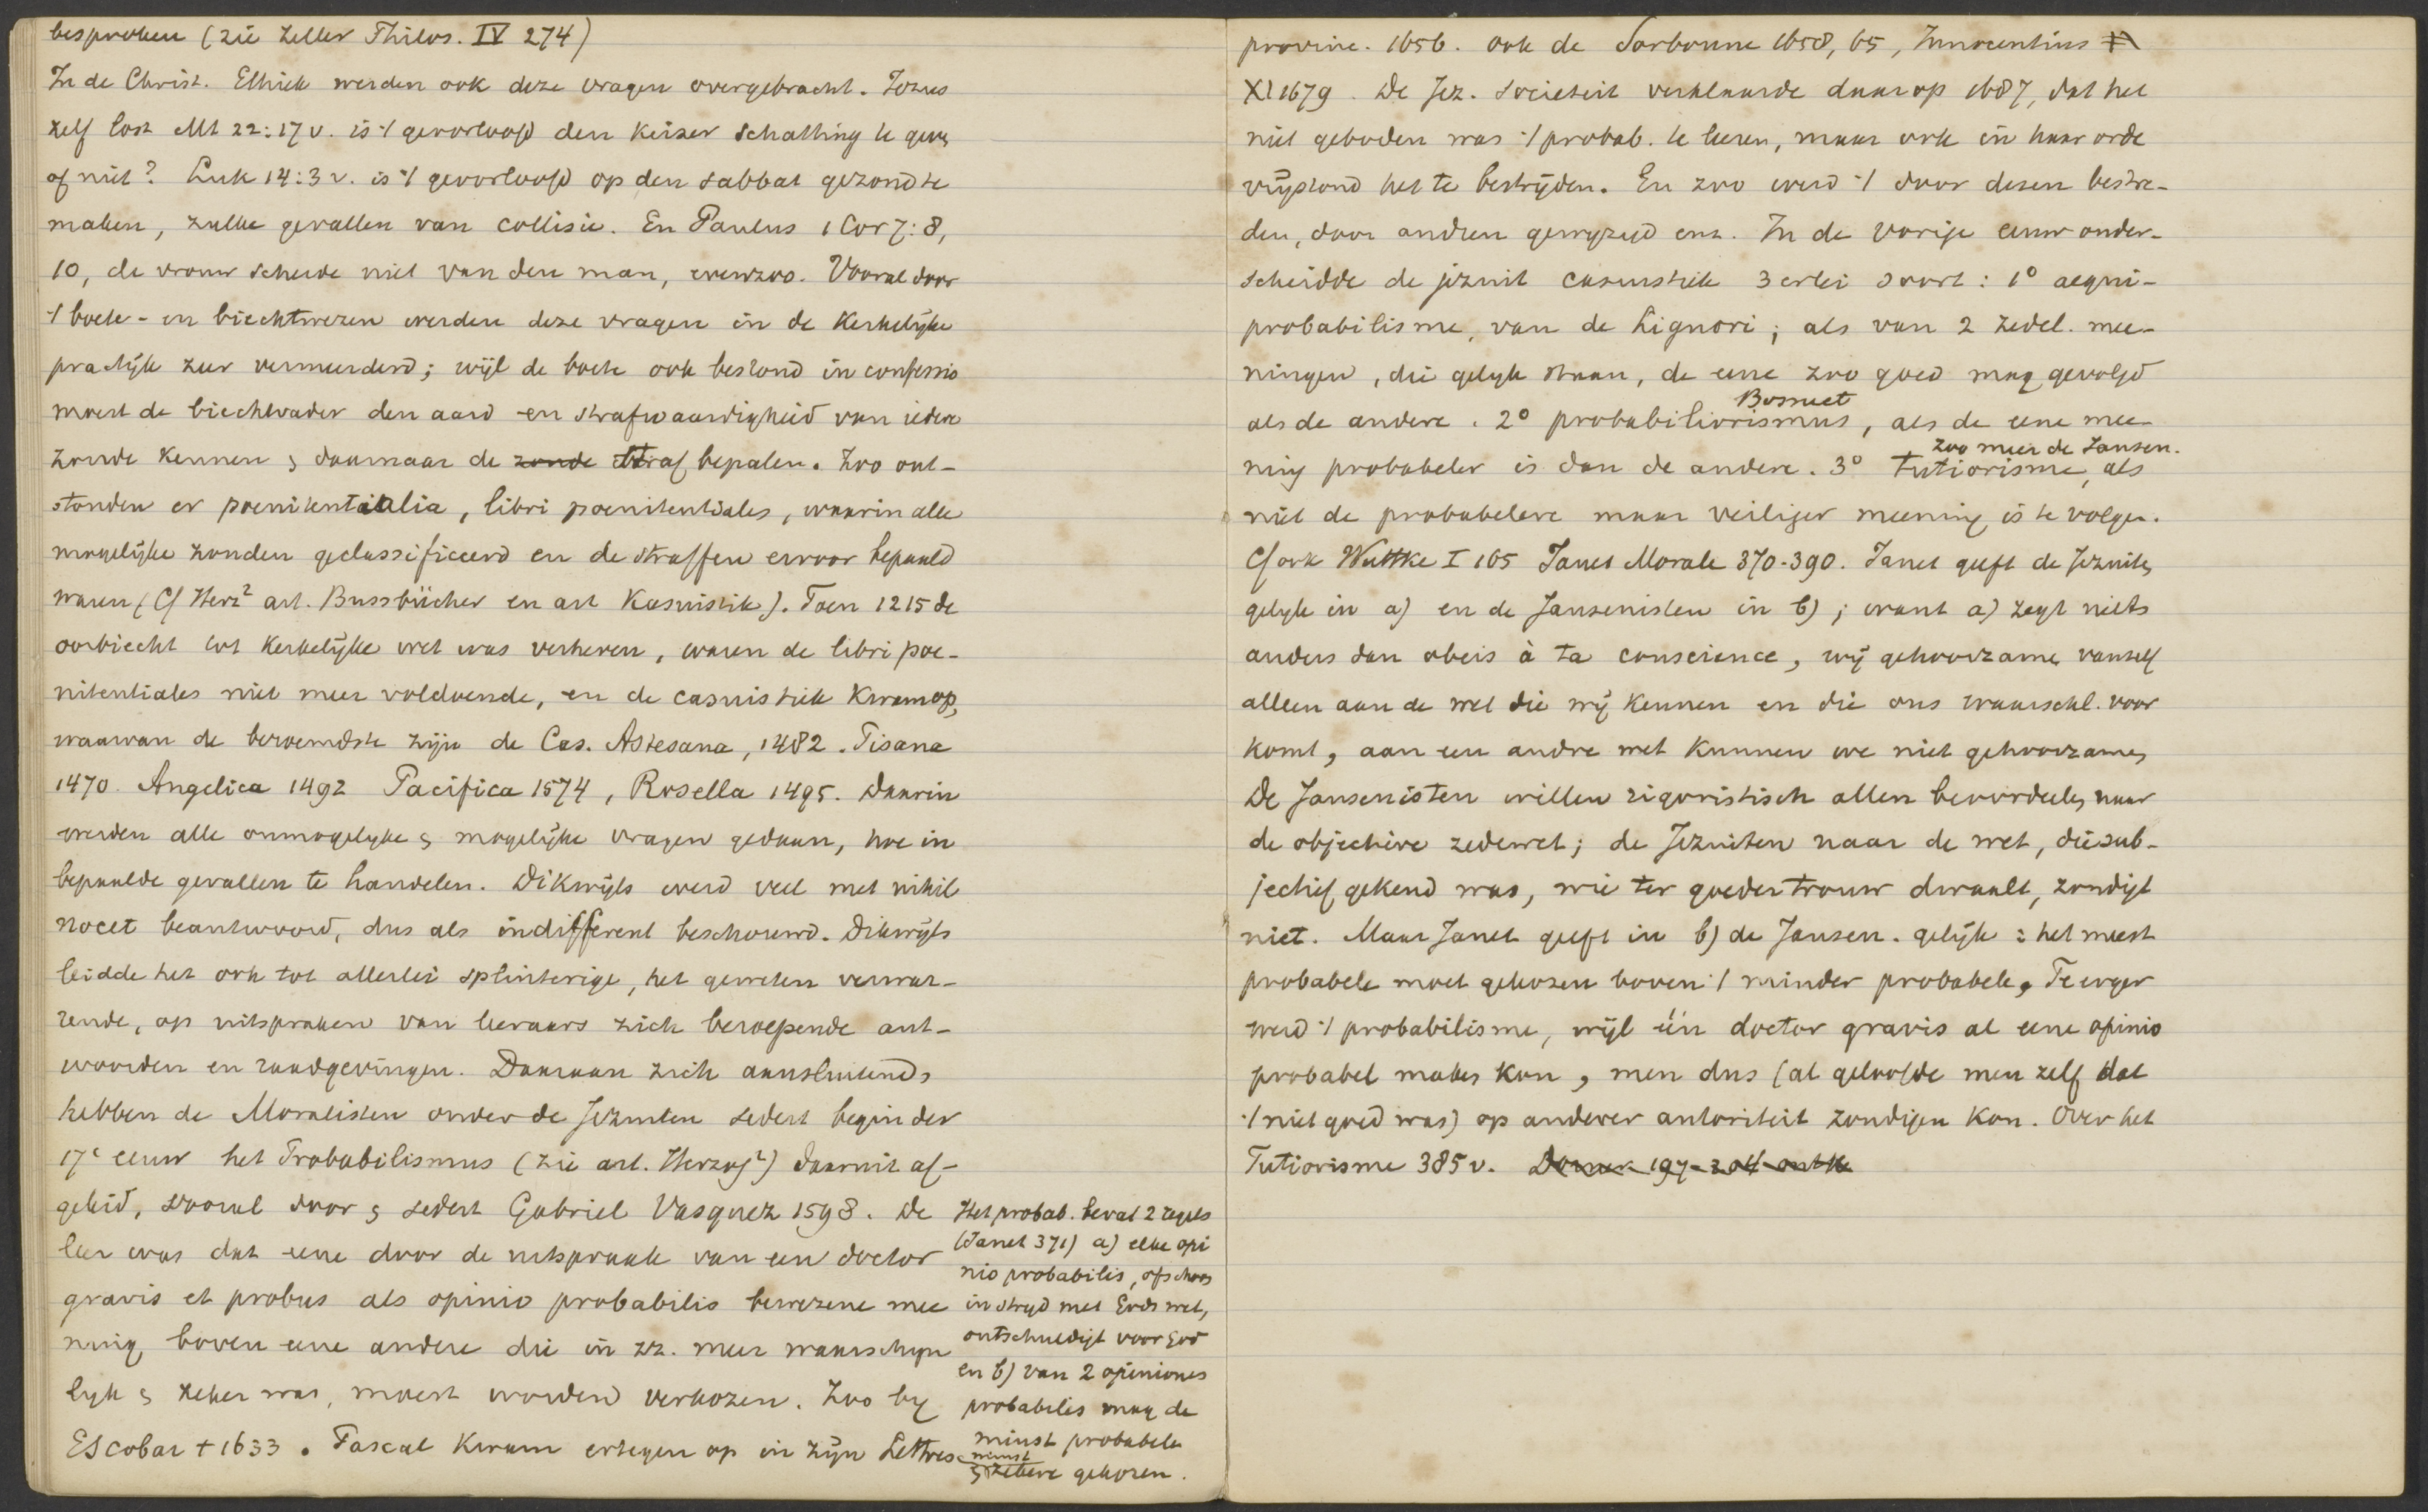 besproken (zie Zeller Philos. IV 274)
In de Christ. Ethiek werden ook deze vragen overgebracht. Jezus
zelf lost Mt 22:17 v. is 't geoorloofd den Keizer Schatting te geven
of niet? Luk 14:3 v. is 't geoorloofd op den sabbat gezond te
maken, zulke gevallen van collisie. En Paulus 1 Cor 7:8,
10, de vrouw scheide niet van den man, evenzoo. Vooral door
't boete- en biechtwezen werden deze vragen in de Kerkelijke
practijk zeer vermeerderd; wijl de boete ook bestond in confessio
moest de biechtvader den aard en strafwaardigheid van iedere
zonde kennen & daarnaar de zonde straf bepalen. Zoo ont-
stonden er poenitentialia, libri poenitentiales, waarin alle
mogelijke zonden geclassificeerd en de straffen ervoor bepaald
waren (Cf Herz² art. Bussbücher en art Kasuistik). Toen 1215 de
oorbiecht tot Kerkelijke wet was verheven, waren de libri poe-
nitentiales niet meer voldoende, en de casuistiek Kwam op,
waarvan de beroemdste zijn de Cas. Astesana, 1482. Pisana
1470. Angelica 1492 Pacifica 1574, Rosella 1495. Daarin
werden alle onmogelyke & mogelijke vragen gedaan, hoe in
bepaalde gevallen te handelen. Dikwijls werd veel met nihil
nocet beantwoord, dus als indifferent beschouwd. Dikwijls
leidde het ook tot allerlei splinterige, het geweten verwar-
rende, op uitspraken van leeraars zich beroepende ant-
woorden en raadgevingen. Daaraan zich aansluitend,
hebben de Moralisten onder de Jezuiten sedert begin der
17e eeuw het Probabilismus (zie art. Herzog²) daaruit af-
geleid, vooral door & sedert Gabriel Vasquez 1598. De
leer was dat eene door de uitspraak van een doctor
gravis et probus als opinio probabilis bewezene mee
ning boven eene andere die in zz. meer waarschyn
lyk & zeker was, moest worden verkozen. Zoo by
Escobar † 1633. Pascal Kwam ertegen op in zijn Lettres
Het probab. bevat 2 regels
(Janet 371) a) elke opi
nio probabilis, ofschoon
in stryd met Gods wet,
ontschuldigt voor God
en b) van 2 opiniones
probabilis mag de
minst probabele
minst
& zekere gekozen.
provinc. 1656. ook de Sorbonne 1658, 65, Innocentius
XI 1679. De Jez. Societeit verklaarde daarop 1687, dat het
niet geboden was 't probab. te leeren, maar ook in haar orde
vrijstond het te bestrijden. En zoo werd 't door dezen bestre-
den, door andren gewyzigd enz. In de vorige eeuw onder-
scheidde de jezuit casuistiek 3 erlei soort: 1° aequi-
probabilisme, van de Liguori; als van 2 zedel. mee-
ningen, die gelyk staan, de eene zoo goed mag gevolgd
als de andere. 2° probabiliorismus, als de eene mee-
Bossuet
ning probabeler is dan de andere. 3° tutiorisme, als
zoo meer de Jansen.
niet de probabelere maar veiliger meening is te volgen.
Cf ook Wuttke I 165 Janet Morale 370-390. Janet geeft de Jezuiten
gelyk in a) en de Jansenisten in b); want a) zegt niets
anders dan obeis à ta conscience, wij gehoorzamen vanself
alleen aan de wet die wij kennen en die ons waarschl. voor
komt, aan een andre wet kunnen we niet gehoorzamen,
De Jansenisten willen rigoristisch allen beoordeelen naar
de objectieve zedewet; de Jezuiten naar de wet, die sub-
jectief gekend was, wie ter goeder trouw dwaalt, zondigt
niet. Maar Janet geeft in b) de Jansen. gelijk: het meest
probabele moet gekozen boven 't minder probabele, Te erger
werd 't probabilisme, wijl één doctor gravis al eene opinio
probabel maken kon, men dus (al geloofde men zelf dat
't niet goed was) op anderer autoriteit zondigen kon. Over het
Tutiorisme 385 v.